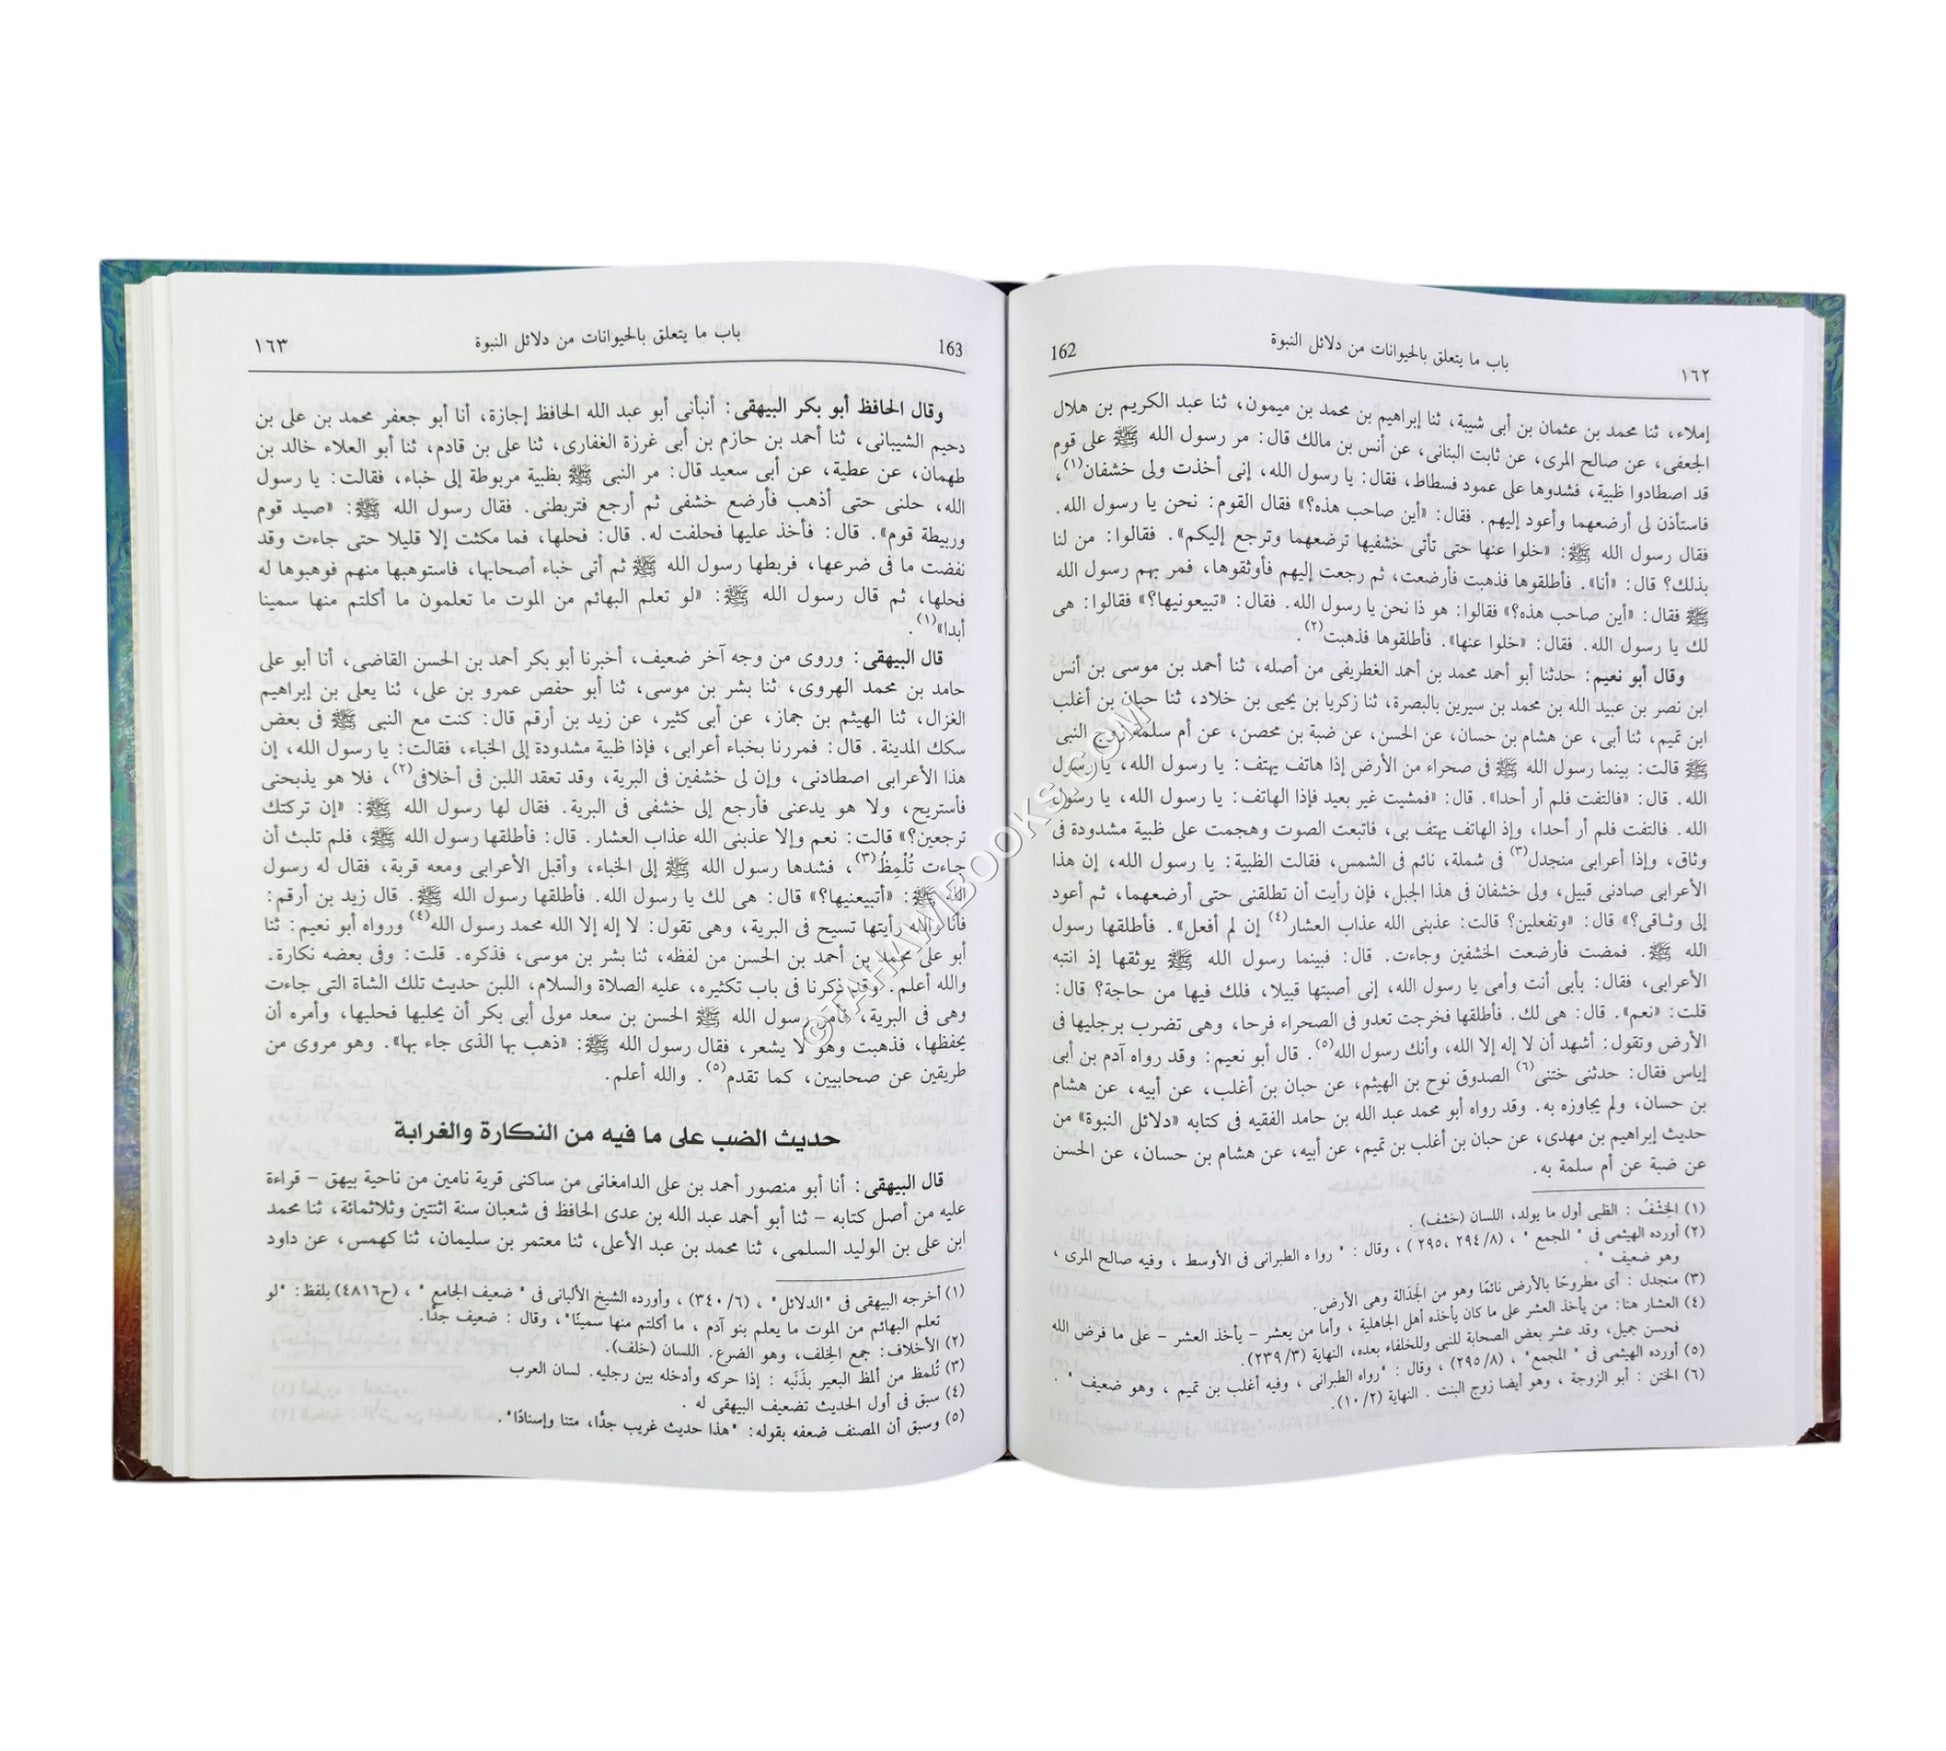 ١٦٢
باب ما يتعلق بالحيوانات من دلائل النبوة
162
إملاء، ثنا محمد بن عثمان بن أبى شيبة، ثنا إبراهيم بن محمد بن ميمون، ثنا عبد الكريم بن هلال
الجعفى، عن صالح المرى، عن ثابت البنانى، عن أنس بن مالك قال: مر رسول الله ﷺ على قوم
قد اصطادوا ظبية، فشدوها على عمود فسطاط، فقال: يا رسول الله، إنى أخذت ولى خشفان(١)،
فاستأذن لى أرضعهما وأعود إليهم. فقال: «أين صاحب هذه؟» فقال القوم: نحن يا رسول الله.
فقال رسول الله ﷺ: «خلوا عنها حتى تأتى خشفيها ترضعهما وترجع إليكم». فقالوا: من لنا
بذلك؟ قال: «أنا». فأطلقوها فذهبت فأرضعت، ثم رجعت إليهم فأوثقوها، فمر بهم رسول الله
ﷺ فقال: «أين صاحب هذه؟» فقالوا: هو ذا نحن يا رسول الله. فقال: «تبيعونيها؟» فقالوا: هى
لك يا رسول الله. فقال: «خلوا عنها». فأطلقوها فذهبت(٢).
وقال أبو نعيم: حدثنا أبو أحمد محمد بن أحمد الغطريفى من أصله، ثنا أحمد بن موسى بن أنس
ابن نصر بن عبيد الله بن محمد بن سيرين بالبصرة، ثنا زكريا بن يحيى بن خلاد، ثنا حبان بن أغلب
ابن تميم، ثنا أبى، عن هشام بن حسان، عن الحسن، عن ضبة بن محصن، عن أم سلمة زوج النبى
ﷺ قالت: بينما رسول الله ﷺ فى صحراء من الأرض إذا هاتف يهتف: يا رسول الله، يا رسول
الله. قال: «فالتفت فلم أر أحدا». قال: «فمشيت غير بعيد فإذا الهاتف: يا رسول الله، يا رسول
الله. فالتفت فلم أر أحدا، وإذ الهاتف يهتف بى، فاتبعت الصوت وهجمت على ظبية مشدودة فى
وثاق، وإذا أعرابى منجدل(٣) فى شملة، نائم فى الشمس، فقالت الظبية: يا رسول الله، إن هذا
الأعرابى صادنى قبيل، ولى خشفان فى هذا الجبل، فإن رأيت أن تطلقنى حتى أرضعهما، ثم أعود
إلى وثاقى؟» قال: «وتفعلين؟ قالت: عذبنى الله عذاب العشار(٤) إن لم أفعل». فأطلقها رسول
الله ﷺ. فمضت فأرضعت الخشفين وجاءت. قال: فبينما رسول الله ﷺ يوثقها إذ انتبه
الأعرابى، فقال: بأبى أنت وأمى يا رسول الله، إنى أصبتها قبيلا، فلك فيها من حاجة؟ قال:
قلت: «نعم». قال: هى لك. فأطلقها فخرجت تعدو فى الصحراء فرحا، وهى تضرب برجليها فى
الأرض وتقول: أشهد أن لا إله إلا الله، وأنك رسول الله(٥). قال أبو نعيم: وقد رواه آدم بن أبى
إياس فقال: حدثنى ختنى(٦) الصدوق نوح بن الهيثم، عن حبان بن أغلب، عن أبيه، عن هشام
بن حسان، ولم يجاوزه به. وقد رواه أبو محمد عبد الله بن حامد الفقيه فى كتابه «دلائل النبوة» من
حديث إبراهيم بن مهدى، عن حبان بن أغلب بن تميم، عن أبيه، عن هشام بن حسان، عن الحسن
عن ضبة عن أم سلمة به.
(١) الخِشْفُ : الظبى أول ما يولد، اللسان (خشف) .
(٢) أورده الهيثمى فى " المجمع " ، (٢٩٤/٨ ،٢٩٥ ) ، وقال : " رواه الطبرانى فى الأوسط ، وفيه صالح المرى ،
وهو ضعيف " .
(٣) منجدل : أى مطروحًا بالأرض نائمًا وهو من الجَدَالة وهى الأرض.
(٤) العشار هنا: من يأخذ العشر على ما كان يأخذه أهل الجاهلية ، وأما من يعشر – يأخذ العشر – على ما فرض الله
فحسن جميل، وقد عشر بعض الصحابة للنبى وللخلفاء بعده، النهاية (٢٣٩/٣).
(٥) أورده الهيثمى فى " المجمع" ، (٢٩٥/٨) ، وقال : "رواه الطبرانى ، وفيه أغلب بن تميم ، وهو ضعيف " .
(٦) الختن : أبو الزوجة ، وهو أيضا زوج البنت . النهاية (١٠/٢).
163
باب ما يتعلق بالحيوانات من دلائل النبوة
١٦٣
وقال الحافظ أبو بكر البيهقى: أنبأنى أبو عبد الله الحافظ إجازة، أنا أبو جعفر محمد بن على بن
دحيم الشيبانى، ثنا أحمد بن حازم بن أبى غرزة الغفارى، ثنا على بن قادم، ثنا أبو العلاء خالد بن
طهمان، عن عطية، عن أبى سعيد قال: مر النبى ﷺ بظبية مربوطة إلى خباء، فقالت: يا رسول
الله، حلنى حتى أذهب فأرضع خشفى ثم أرجع فتربطنى. فقال رسول الله ﷺ: «صيد قوم
وربيطة قوم». قال: فأخذ عليها فحلفت له. قال: فحلها، فما مكثت إلا قليلا حتى جاءت وقد
نفضت ما فى ضرعها، فربطها رسول الله ﷺ ثم أتى خباء أصحابها، فاستوهبها منهم فوهبوها له
فحلها، ثم قال رسول الله ﷺ: «لو تعلم البهائم من الموت ما تعلمون ما أكلتم منها سمينا
أبدا»(١).
قال البيهقى: وروى من وجه آخر ضعيف، أخبرنا أبو بكر أحمد بن الحسن القاضى، أنا أبو على
حامد بن محمد الهروى، ثنا بشر بن موسى، ثنا أبو حفص عمرو بن على، ثنا يعلى بن إبراهيم
الغزال، ثنا الهيثم بن جماز، عن أبى كثير، عن زيد بن أرقم قال: كنت مع النبى ﷺ فى بعض
سكك المدينة. قال: فمررنا بخباء أعرابى، فإذا ظبية مشدودة إلى الخباء، فقالت: يا رسول الله، إن
هذا الأعرابى اصطادنى، وإن لى خشفين فى البرية، وقد تعقد اللبن فى أخلافى(٢)، فلا هو يذبحنى
فأستريح، ولا هو يدعنى فأرجع إلى خشفى فى البرية. فقال لها رسول الله ﷺ: «إن تركتك
ترجعين؟» قالت: نعم وإلا عذبنى الله عذاب العشار. قال: فأطلقها رسول الله ﷺ، فلم تلبث أن
جاءت تُلْمِظُ(٣)، فشدها رسول الله ﷺ إلى الخباء، وأقبل الأعرابى ومعه قربة، فقال له رسول
الله ﷺ: «أتبيعنيها؟» قال: هى لك يا رسول الله. فأطلقها رسول الله ﷺ. قال زيد بن أرقم:
فأنا والله رأيتها تسيح فى البرية، وهى تقول: لا إله إلا الله محمد رسول الله(٤) ورواه أبو نعيم: ثنا
أبو على محمد بن أحمد بن الحسن من لفظه، ثنا بشر بن موسى، فذكره. قلت: وفى بعضه نكارة.
والله أعلم. وقد ذكرنا فى باب تكثيره، عليه الصلاة والسلام، اللبن حديث تلك الشاة التى جاءت
وهى فى البرية، فأمر رسول الله ﷺ الحسن بن سعد مولى أبى بكر أن يحلبها فحلبها، وأمره أن
يحفظها، فذهبت وهو لا يشعر، فقال رسول الله ﷺ: «ذهب بها الذى جاء بها». وهو مروى من
طريقين عن صحابيين، كما تقدم(٥). والله أعلم.
حديث الضب على ما فيه من النكارة والغرابة
قال البيهقى: أنا أبو منصور أحمد بن على الدامغانى من ساكنى قرية نامين من ناحية بيهق – قراءة
عليه من أصل كتابه – ثنا أبو أحمد عبد الله بن عدى الحافظ فى شعبان سنة اثنتين وثلاثمائة، ثنا محمد
ابن على بن الوليد السلمى، ثنا محمد بن عبد الأعلى، ثنا معتمر بن سليمان، ثنا كهمس، عن داود
(١) أخرجه البيهقى فى "الدلائل" ، (٣٤٠/٦) ، وأورده الشيخ الألبانى فى " ضعيف الجامع " ، (ح٤٨١٦) بلفظ: "لو
تعلم البهائم من الموت ما يعلم بنو آدم ، ما أكلتم منها سمينًا"، وقال : ضعيف جدًّا.
(٢) الأخلاف: جمع الخِلف، وهو الضرع. اللسان (خلف).
(٣) تُلمظ من ألمظ البعير بذَنَبه : إذا حركه وأدخله بين رجليه. لسان العرب
(٤) سبق فى أول الحديث تضعيف البيهقى له .
(٥) وسبق أن المصنف ضعفه بقوله: "هذا حديث غريب جدًّا، متنا وإسنادًا".
©TAHAWIBOOKS.COM